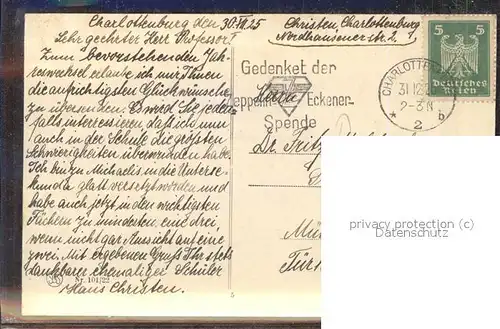 Charlottenburg den 30.XII.25
Sehr geehrter Herr Professor!
Zum bevorstehenden Jah-
reswechsel erlaube ich mir Ihnen
die aufrichtigsten Glückwünsche
zu übersenden. Es wird Sie jeden-
falls interessieren, daß ich nun
auch in der Schule die größten
Schwierigkeiten überwunden habe.
Ich bin zu Michaelis in die Unterse-
kunda glatt versetzt worden und
habe auch jetzt in den wichtigsten
Fächern zu mindesten, eine drei,
wenn nicht gar Aussicht auf eine
zwei. Mit ergebenen Gruß Ihr stets
dankbarer ehemaliger Schüler
Hans Christen.
Nr. 101/22
Christen Charlottenburg
Nordhausenerstr. 2.
Gedenket der
Zeppelin Eckener-
Spende
CHARLOTTEN
31.12.
2-3 N
* 2 b
5 5
Deutsches
Reich
Herrn
Dr. Fritz
privacy protection (c)
Datenschutz